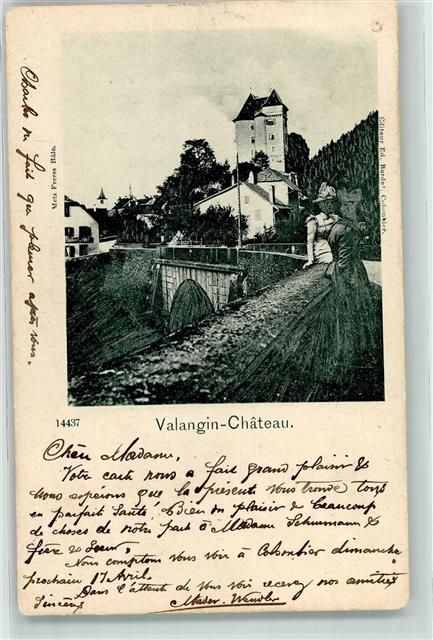 Charles ne fait que pleurer après vous.
Metz Freres Bâle.
Editeur Ed. Burdet Colombier.
14437 Valangin-Château.
Chère Madame,
Votre carte nous a fait grand plaisir &
nous espérons que la présente vous trouve tous
en parfait Santé. Bien du plaisir & beaucoup
de choses de notre part à Madame Schumann &
frère & Soeur,
Nous comptons vous voir à Colombier dimanche
prochain 17 Avril.
Dans l'attente de vous voir recevez nos amitiés
Sincères Mader-Wendler